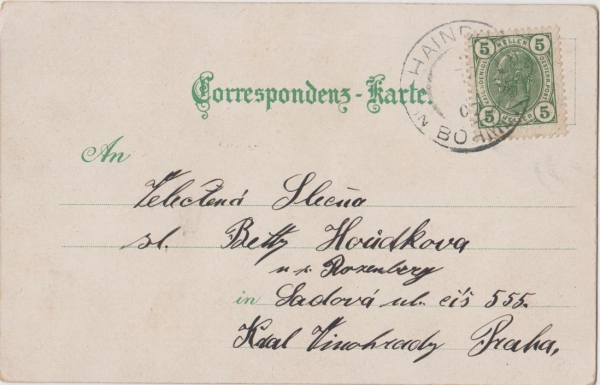 Correspondenz-Karte.
HAIN
IN BÖHM
5 HELLER 5
5 HELLER 5
An
Velectená Slečna
sl. Betty Hoůdkova
u p. Rozenberg
in Sadová ul. čiś 555.
Kral Vinohrady Praha,